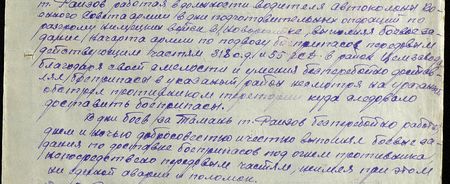 т. Фаизов работая в должности водителя автоколонны Во-
енного Совета армии в дни подготовительных операций по
разгрому немецких войск в Новороссийске, выполняя боевые за-
дания начарта армии по подвозу боеприпасов передовым
действующим частям 318 с.д. и 55 гсд в район Цемзавод
благодаря своей смелости и умения бесперебойно достав-
лял боеприпасы в указанный район несмотря на ураганный
обстрел противником территории куда следовало
доставить боеприпасы.
В дни боев за Тамань т. Фаизов бесперебойно работал
днем и ночью добросовестно и честно выполнял боевые за-
дания по доставке боеприпасов под огнем противника
непосредственно передовым частям, не имея при этом
ни единой аварии и поломок.